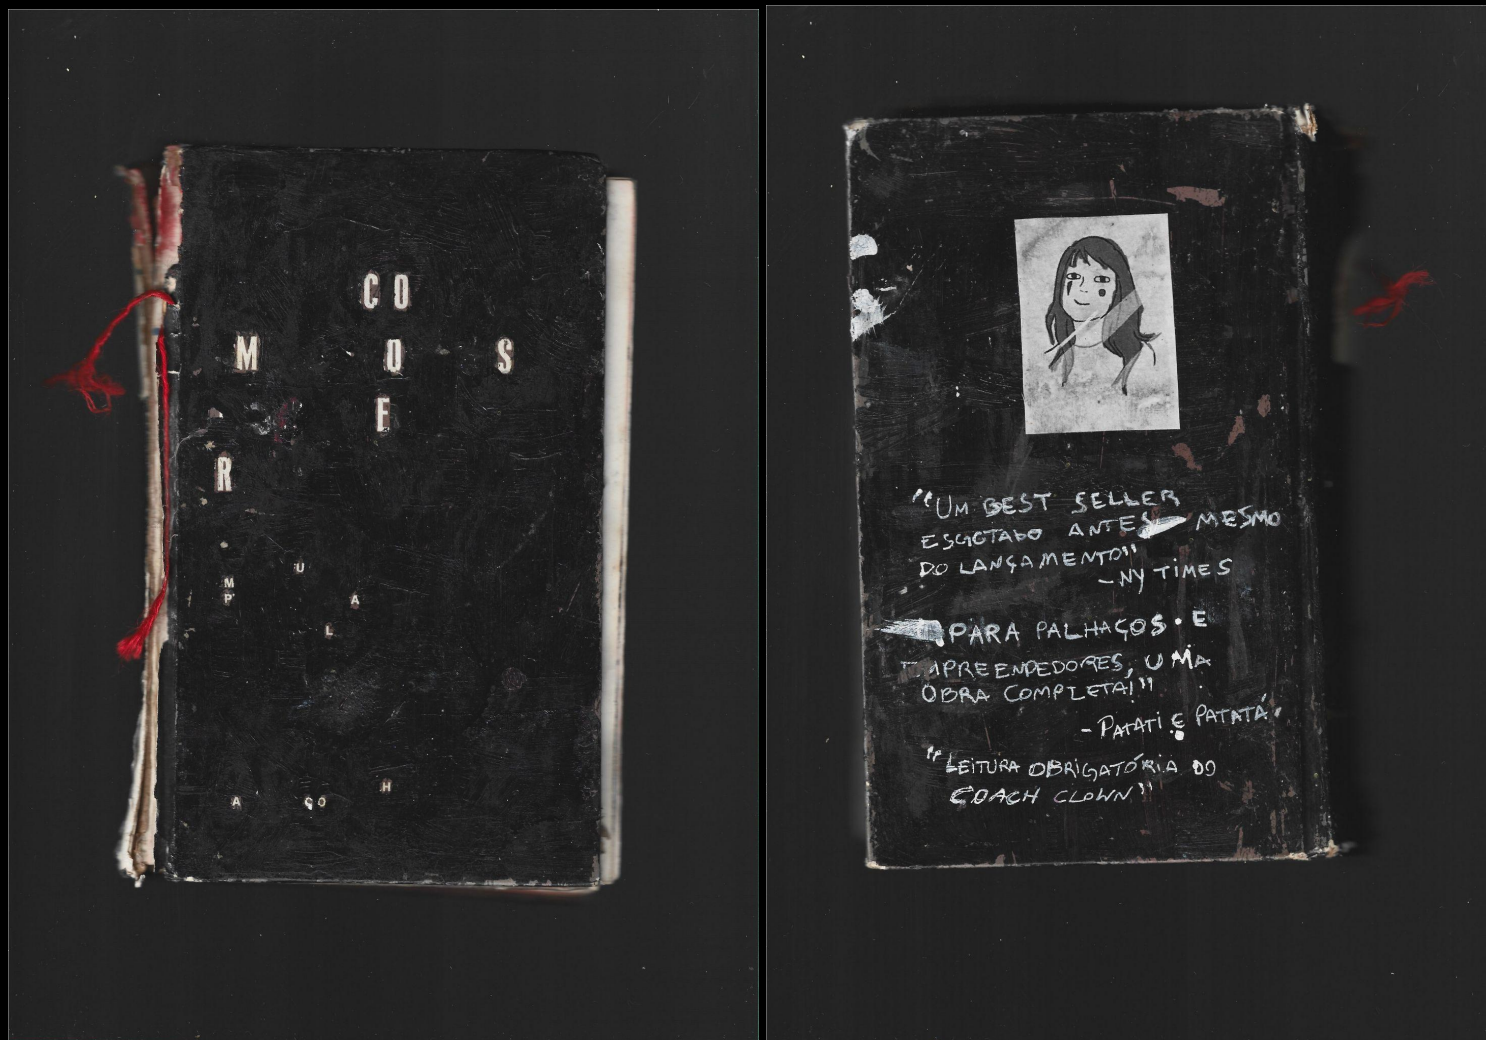 CO
M O S
E
R
U
M
P A
L
H
A ÇO
"UM BEST SELLER
ESGOTADO ANTES MESMO
DO LANÇAMENTO"
- NY TIMES
PARA PALHAÇOS E
EMPREENDEDORES, UMA
OBRA COMPLETA!"
- PATATI E PATATÁ.
"LEITURA OBRIGATÓRIA DO
COACH CLOWN"